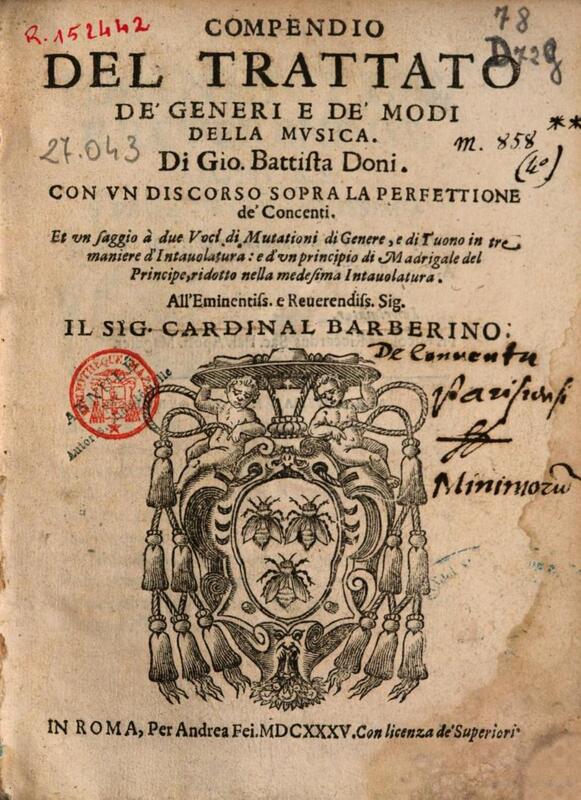 R. 152442
78
D729
COMPENDIO
DEL TRATTATO
DE' GENERI E DE' MODI
DELLA MVSICA.
27.043
**
m. 858
(4°)
Di Gio. Battista Doni.
CON VN DISCORSO SOPRA LA PERFETTIONE
de' Concenti.
Et vn saggio à due Voci di Mutationi di Genere, e di Tuono in tre
maniere d'Intauolatura: e d'vn principio di Madrigale del
Principe, ridotto nella medesima Intauolatura.
All'Eminentiss. e Reuerendiss. Sig.
IL SIG. CARDINAL BARBERINO.
De Conventu
parisiensi
Minimorū
IN ROMA, Per Andrea Fei. MDCXXXV. Con licenza de' Superiori